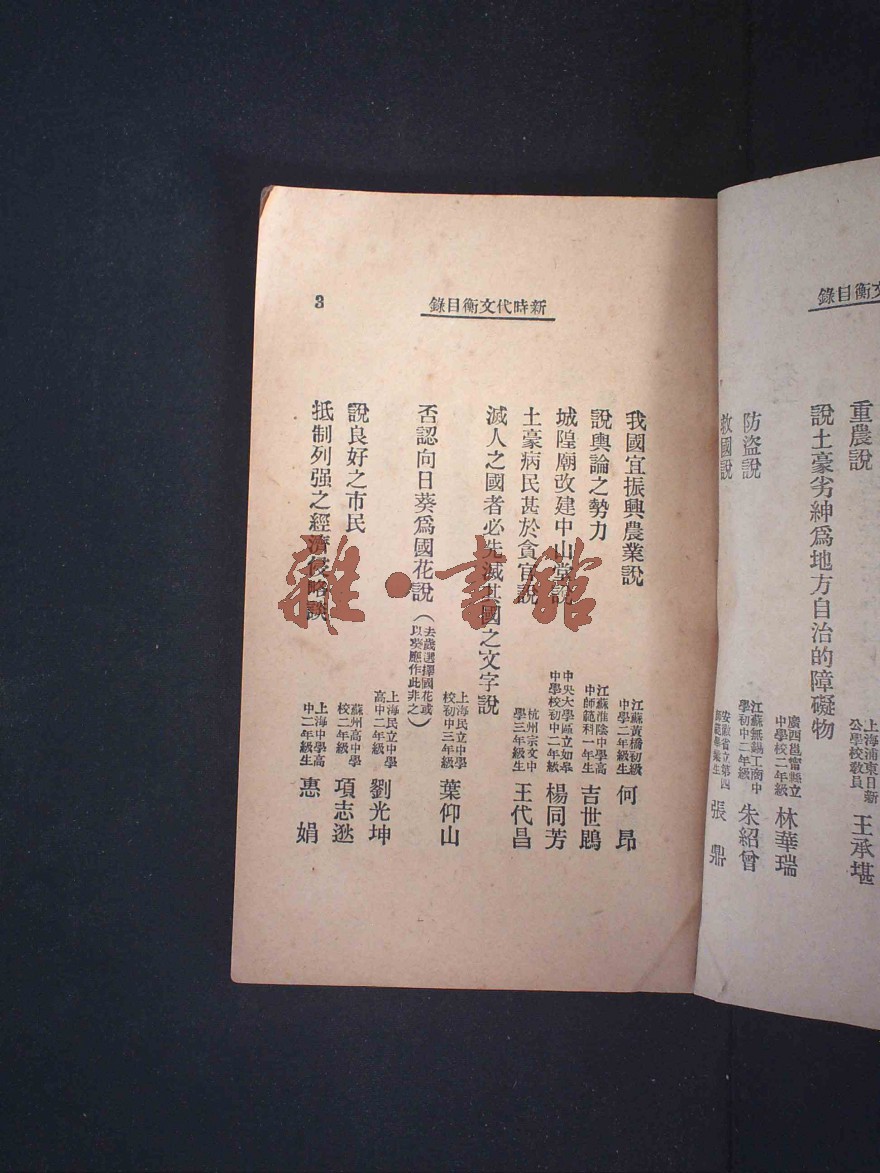 文衡目錄
重農說 上海浦東日新公學校教員 王承堪
說土豪劣紳爲地方自治的障礙物 廣西邕甯縣立中學校二年級 林華瑞
防盜說 江蘇無錫工商中學初中二年級 朱紹曾
救國說 安徽省立第四師範畢業生 張鼎
新時代文衡目錄
3
我國宜振興農業說 江蘇黃橋初級中學二年級生 何昂
說輿論之勢力 江蘇淮陰中學高中師範科一年生 吉世
城隍廟改建中山堂說 中央大學區立如皋中學校初中二年級 楊同芳
土豪病民甚於貪官說 杭州宗文中學三年級生 王代昌
滅人之國者必先滅其國之文字說 上海民立中學校初中三年級 葉仰山
否認向日葵爲國花說(去歲選擇國花或以葵應作此非之) 上海民立中學高中二年級 劉光坤
說良好之市民 蘇州高中學校二年級 項志逖
抵制列强之經濟侵略談 上海中學高中二年級生 惠娟
雜·書館